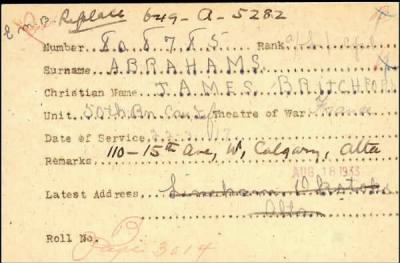 E.M.B. Replace 649-A-5282
Number 808785 Rank
Surname ABRAHAMS
Christian Name JAMES BRITCHFORD
Unit 50th Bn Can Inf Theatre of War France
Date of Service
Remarks 110-15th Ave, W, Calgary, Alta
AUG 18 1933
Latest Address
Alta
Roll No. Page 3014